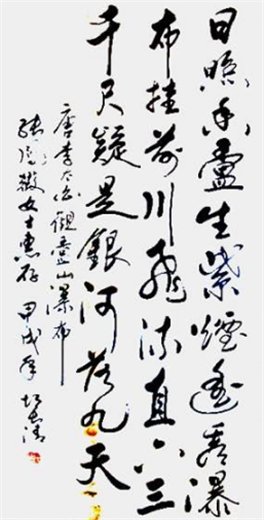 日照香盧生紫煙遥看瀑
布挂前川飛流直下三
千尺疑是銀河落九天
唐李太白觀廬山瀑布
女士惠存 甲戌年